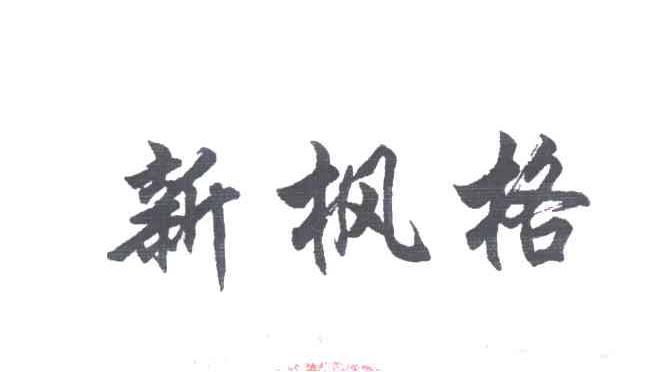 新枫格